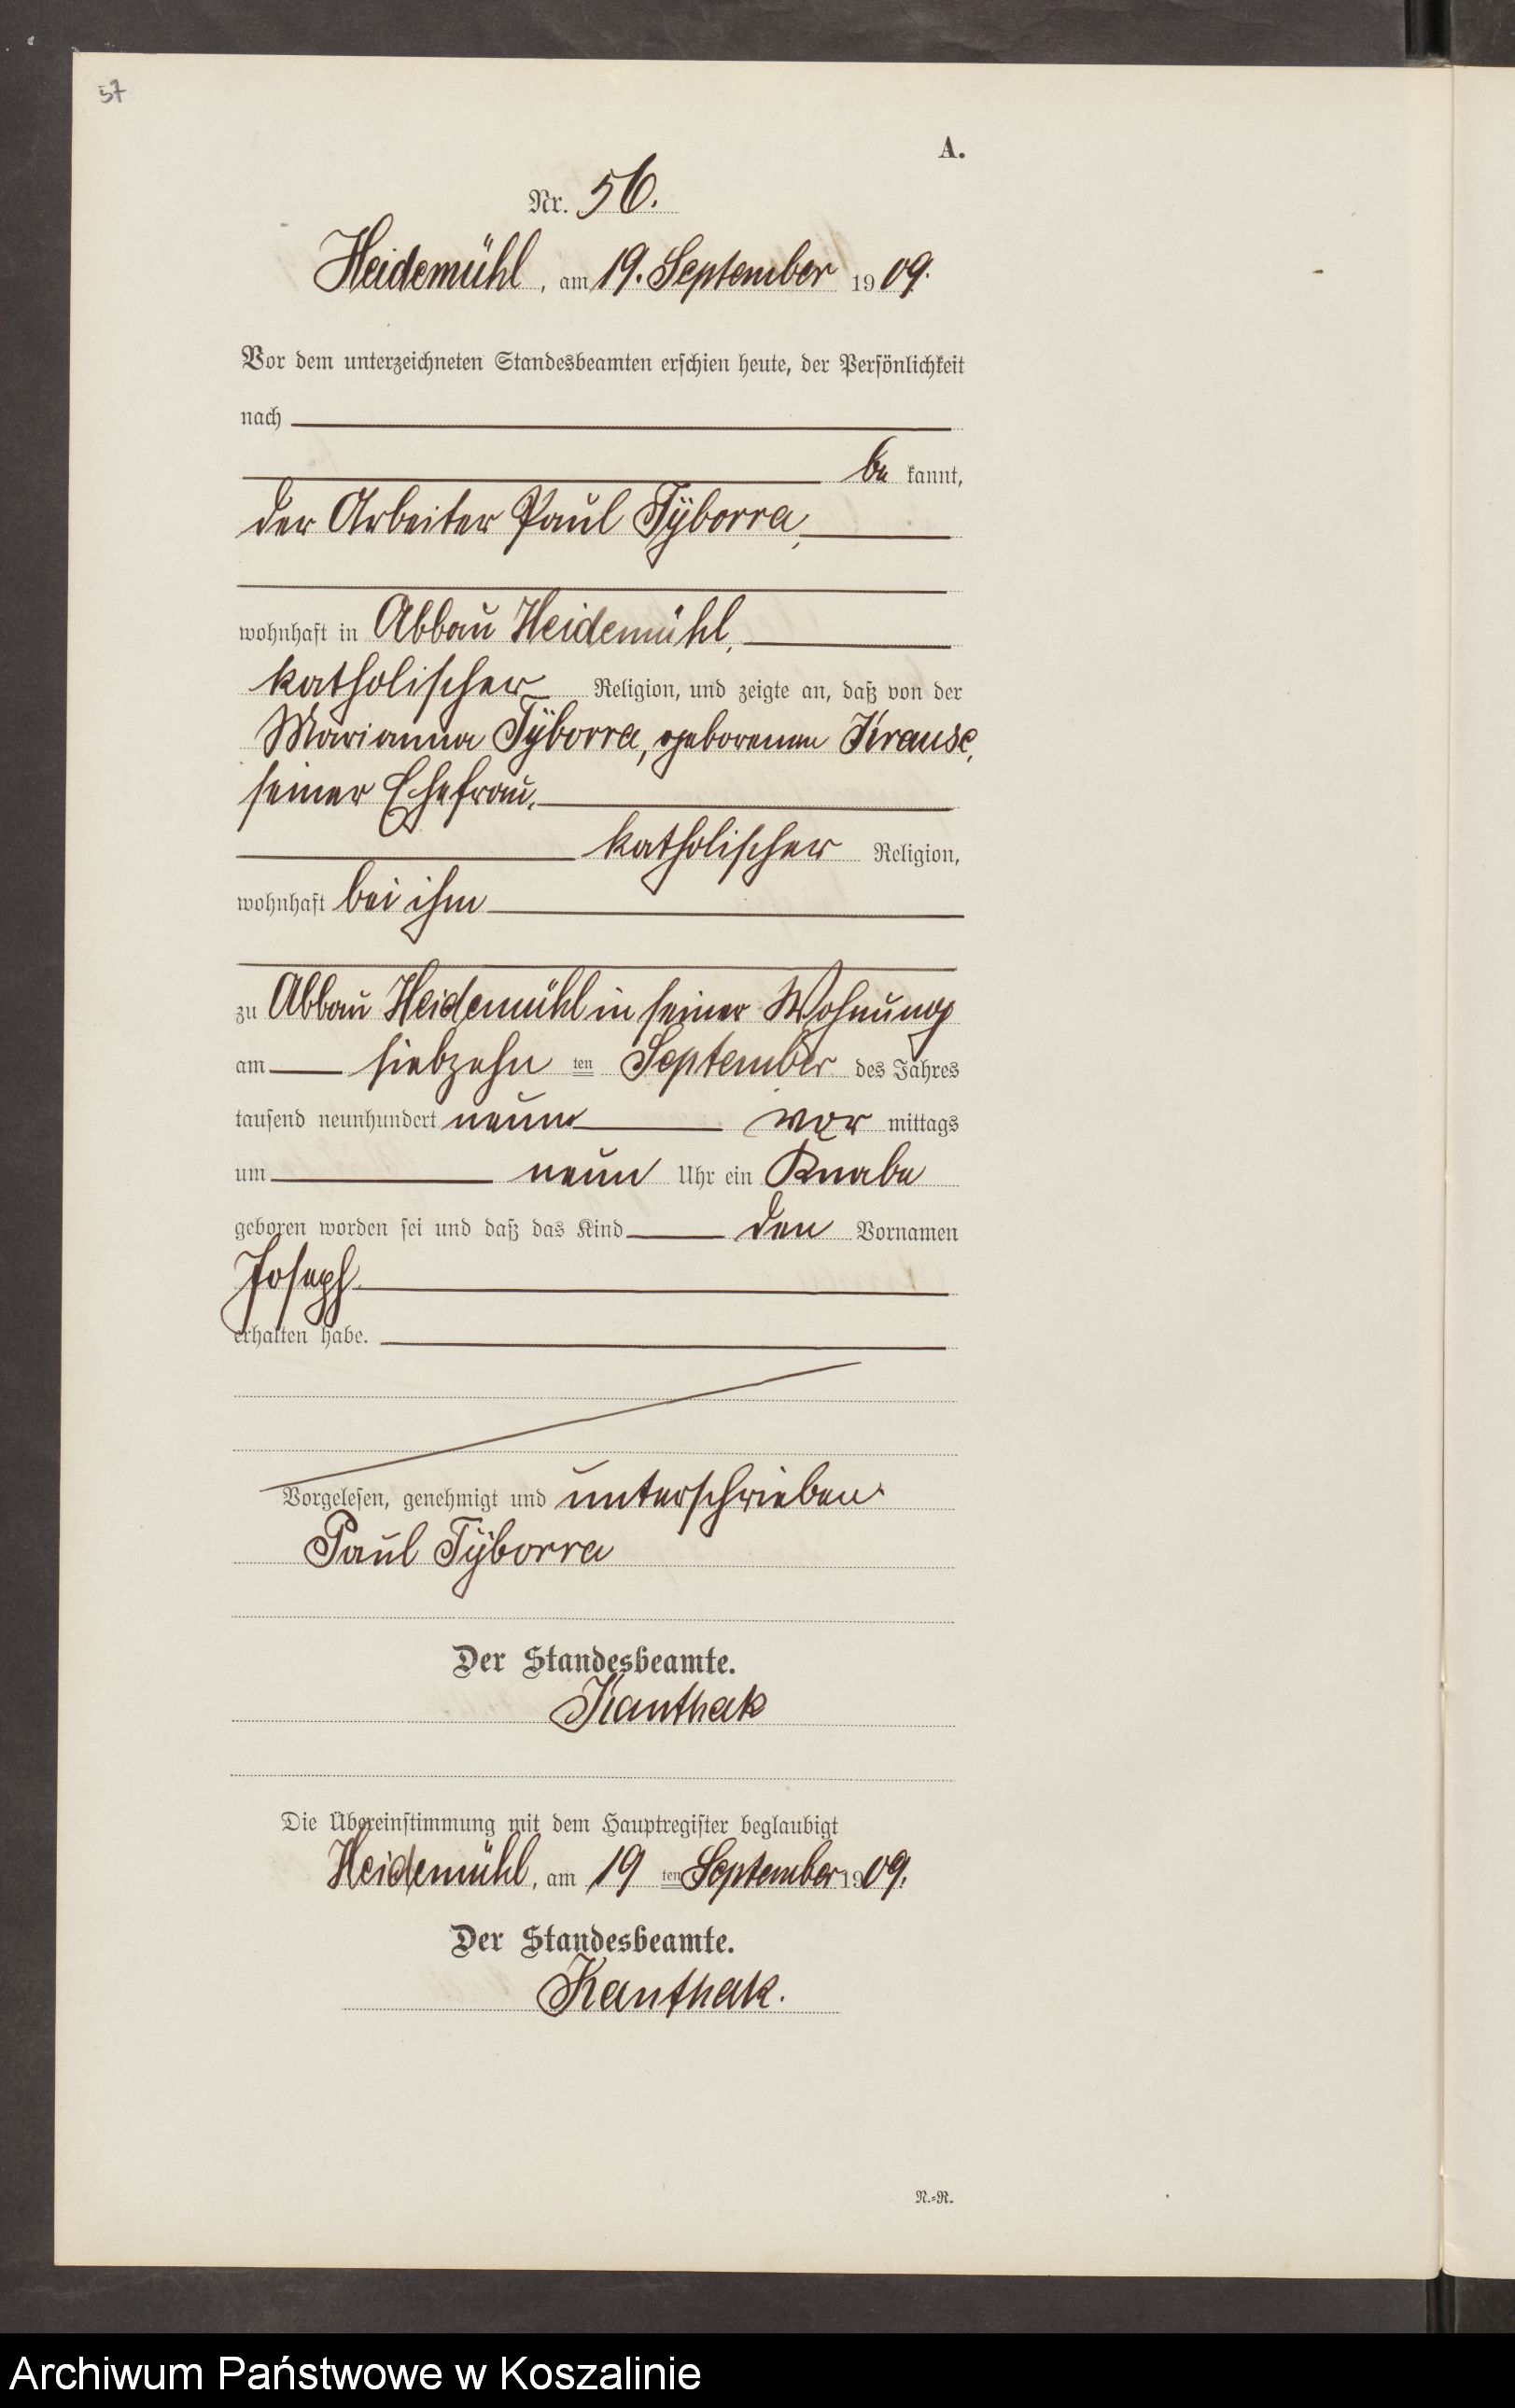 57
A.
Nr. 56.
Heidemühl, am 19. September 1909.
Vor dem unterzeichneten Standesbeamten erschien heute, der Persönlichkeit
nach
be kannt,
der Arbeiter Paul Tÿborra,
wohnhaft in Abbau Heidemühl,
katholischer Religion, und zeigte an, daß von der
Marianna Tÿborra, geborenen Krause,
seiner Ehefrau,
katholischer Religion,
wohnhaft bei ihm
zu Abbau Heidemühl in seiner Wohnung
am siebzehn ten September des Jahres
tausend neunhundert neun vor mittags
um neun Uhr ein Knabe
geboren worden sei und daß das Kind den Vornamen
Joseph
erhalten habe.
Vorgelesen, genehmigt und unterschrieben
Paul Tÿborra
Der Standesbeamte.
Kanthak
Die Übereinstimmung mit dem Hauptregister beglaubigt
Heidemühl, am 19 ten September 1909.
Der Standesbeamte.
Kanthak.
N.=R.
Archiwum Państwowe w Koszalinie